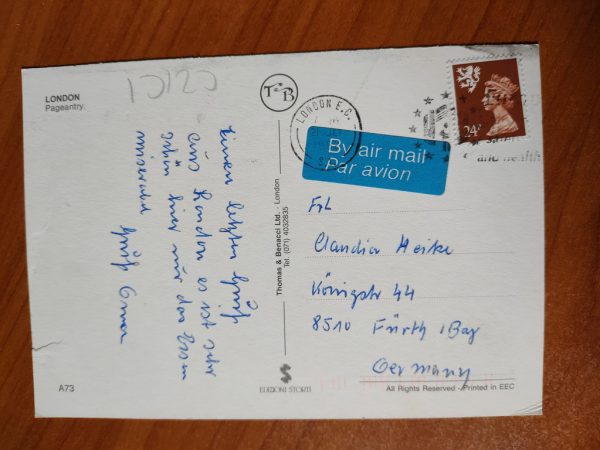 LONDON
Pageantry
T&B
LONDON E.C.
24P
and health
By air mail
Par avion
Einen letzten Gruß
aus London es ist sehr
schön hier nur das Essen
miserabel
Gruß Oma
Thomas & Benacci Ltd. - London
Tel. (071) 4032835
Frl
Claudia Heike
Königstr 44
8510 Fürth / Bay
Germany
A73
EDIZIONI STORTI
All Rights Reserved - Printed in EEC